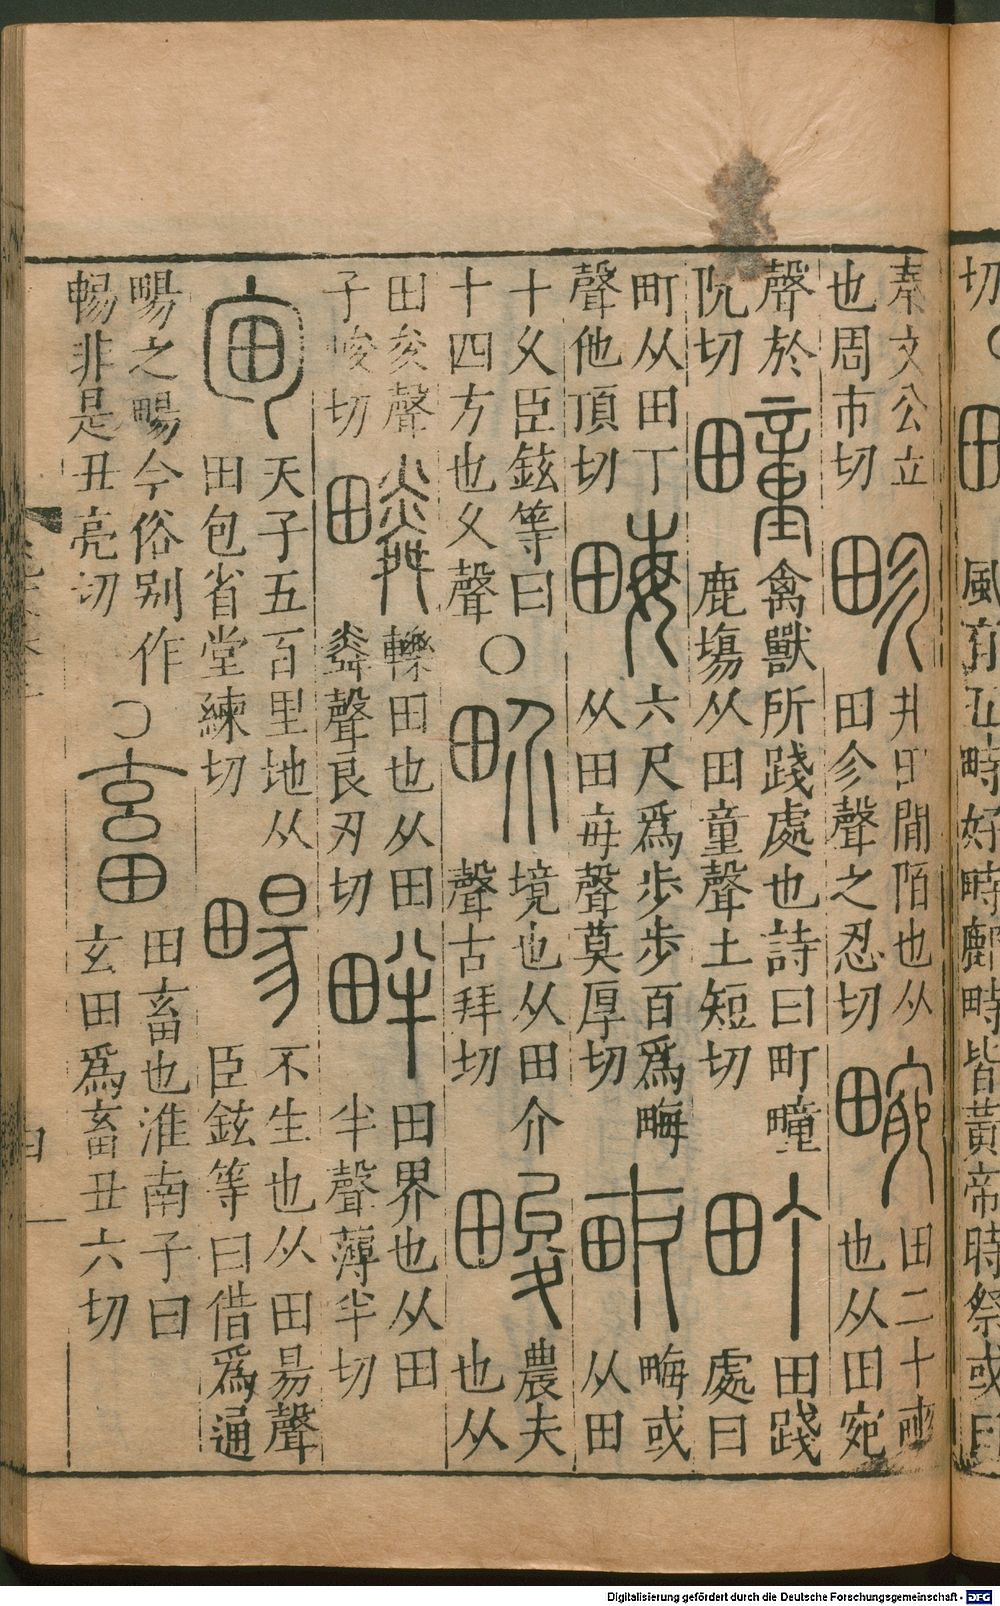 切
風有五畤好畤鄜畤皆黃帝時祭或曰
秦文公立
也周市切
畛
井田閒陌也从
田㐱聲之忍切
畹
田二十畝
也从田宛
聲於
阮切
疃
禽獸所踐處也詩曰町疃
鹿場从田童聲土短切
町
田踐
處曰
町从田丁
聲他頂切
畮
六尺爲步步百爲畮
从田每聲莫厚切
畝
畮或
从田
十久臣鉉等曰
十四方也久聲
〇
畍
境也从田介
聲古拜切
畯
農夫
也从
田夋聲
子峻切
疄
轢田也从田
粦聲良刃切
畔
田界也从田
半聲薄半切
甸
天子五百里地从
田包省堂練切
畼
不生也从田昜聲
臣鉉等曰借爲通
畼之畼今俗別作
暢非是丑亮切
〇
畜
田畜也淮南子曰
玄田爲畜丑六切
Digitalisierung gefördert durch die Deutsche Forschungsgemeinschaft - DFG